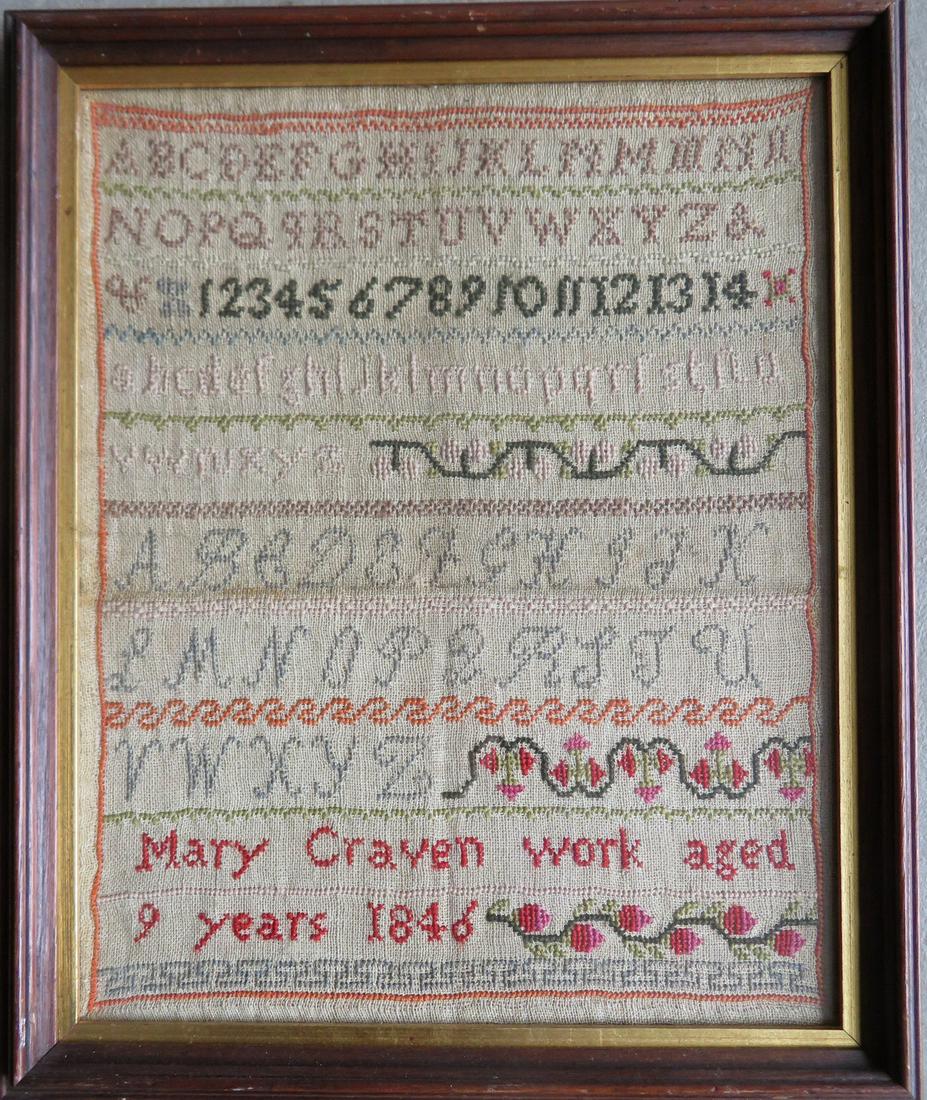 ABCDEFGHIJKLMMMNN
NOPQqRSTUVWXYZ&
1234567891011121314
abcdefghijklmnopqrſstu
vwxyz
ABCDEFGHIJK
LMNOPQRSTU
VWXYZ
Mary Craven work aged
9 years 1846